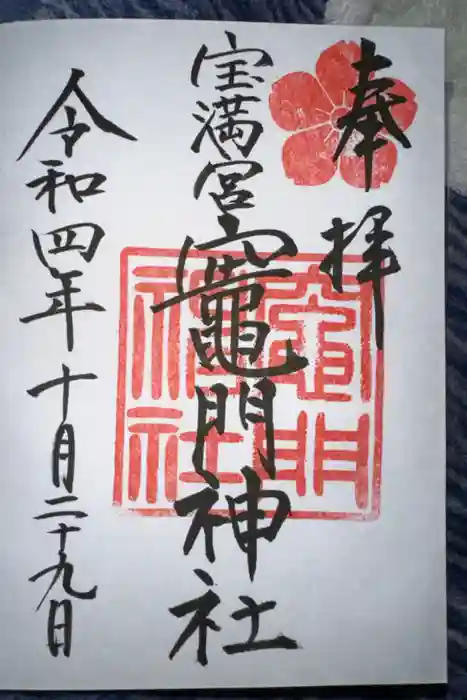 奉拝
宝満宮竈門神社
令和四年十月二十九日
竈門
神社